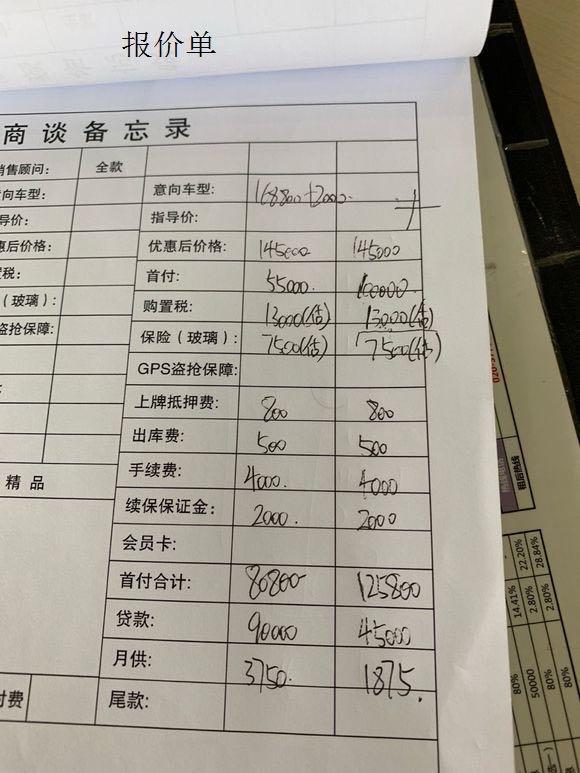 报价单
商谈备忘录
销售顾问: 全款
意向车型: 意向车型: 168800+2000
导价: 指导价:
惠后价格: 优惠后价格: 145000 145000
置税: 首付: 55000. 100000.
(玻璃): 购置税: 13000(估) 13000(估)
盗抢保障: 保险(玻璃): 7500(估) 7500(估)
GPS盗抢保障:
上牌抵押费: 800 800
出库费: 500 500
精品 手续费: 4000. 4000
续保保证金: 2000. 2000
会员卡:
首付合计: 80800 125800
贷款: 90000 45000
月供: 3750. 1875.
付费 尾款:
租后热线
22.20%
28.84%
14.41%
2.80%
2.80%
80%
50000
80%
80%